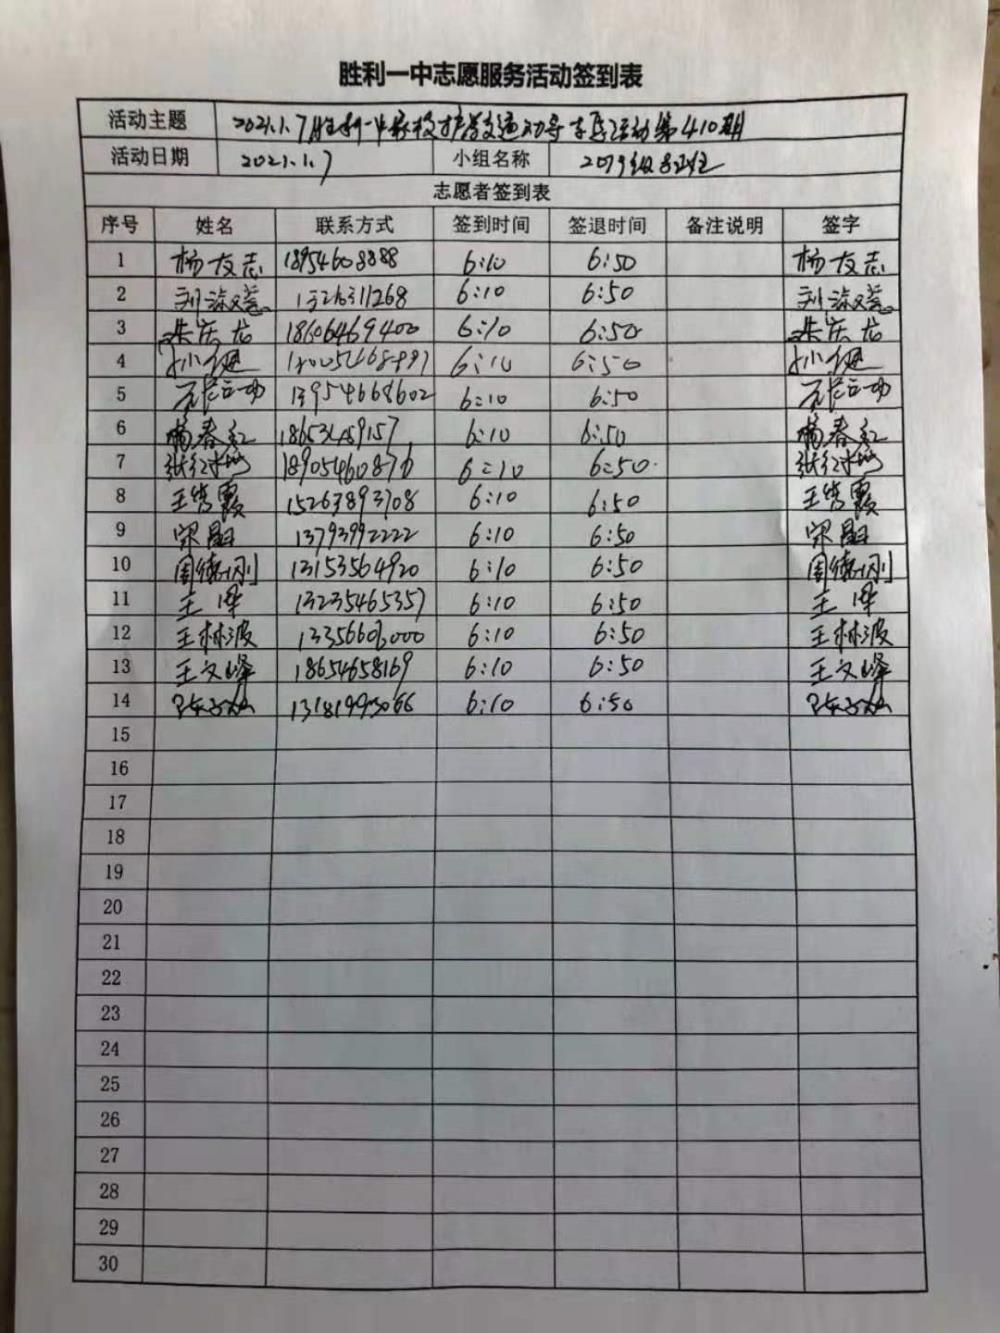 胜利一中志愿服务活动签到表
活动主题 2021.1.7胜利一中家校护学交通劝导志愿活动第410期
活动日期 2021.1.7 小组名称 2019级
志愿者签到表
序号 姓名 联系方式 签到时间 签退时间 备注说明 签字
1 杨友志 18954608888 6:10 6:50 杨友志
2 刘淑慧 6:10 6:50 刘淑慧
3 朱庆龙 18606469400 6:10 6:50 朱庆龙
4 孙健 6:10 6:50 孙健
5 13954668602 6:10 6:50
6 杨春红 6:10 6:50 杨春红
7 18905460876 6:10 6:50
8 王秀霞 15263893708 6:10 6:50 王秀霞
9 13793992222 6:10 6:50
10 周德刚 13153564920 6:10 6:50 周德刚
11 13235465357 6:10 6:50
12 王林波 13356606000 6:10 6:50 王林波
13 王文峰 18654658169 6:10 6:50 王文峰
14 6:10 6:50
15
16
17
18
19
20
21
22
23
24
25
26
27
28
29
30